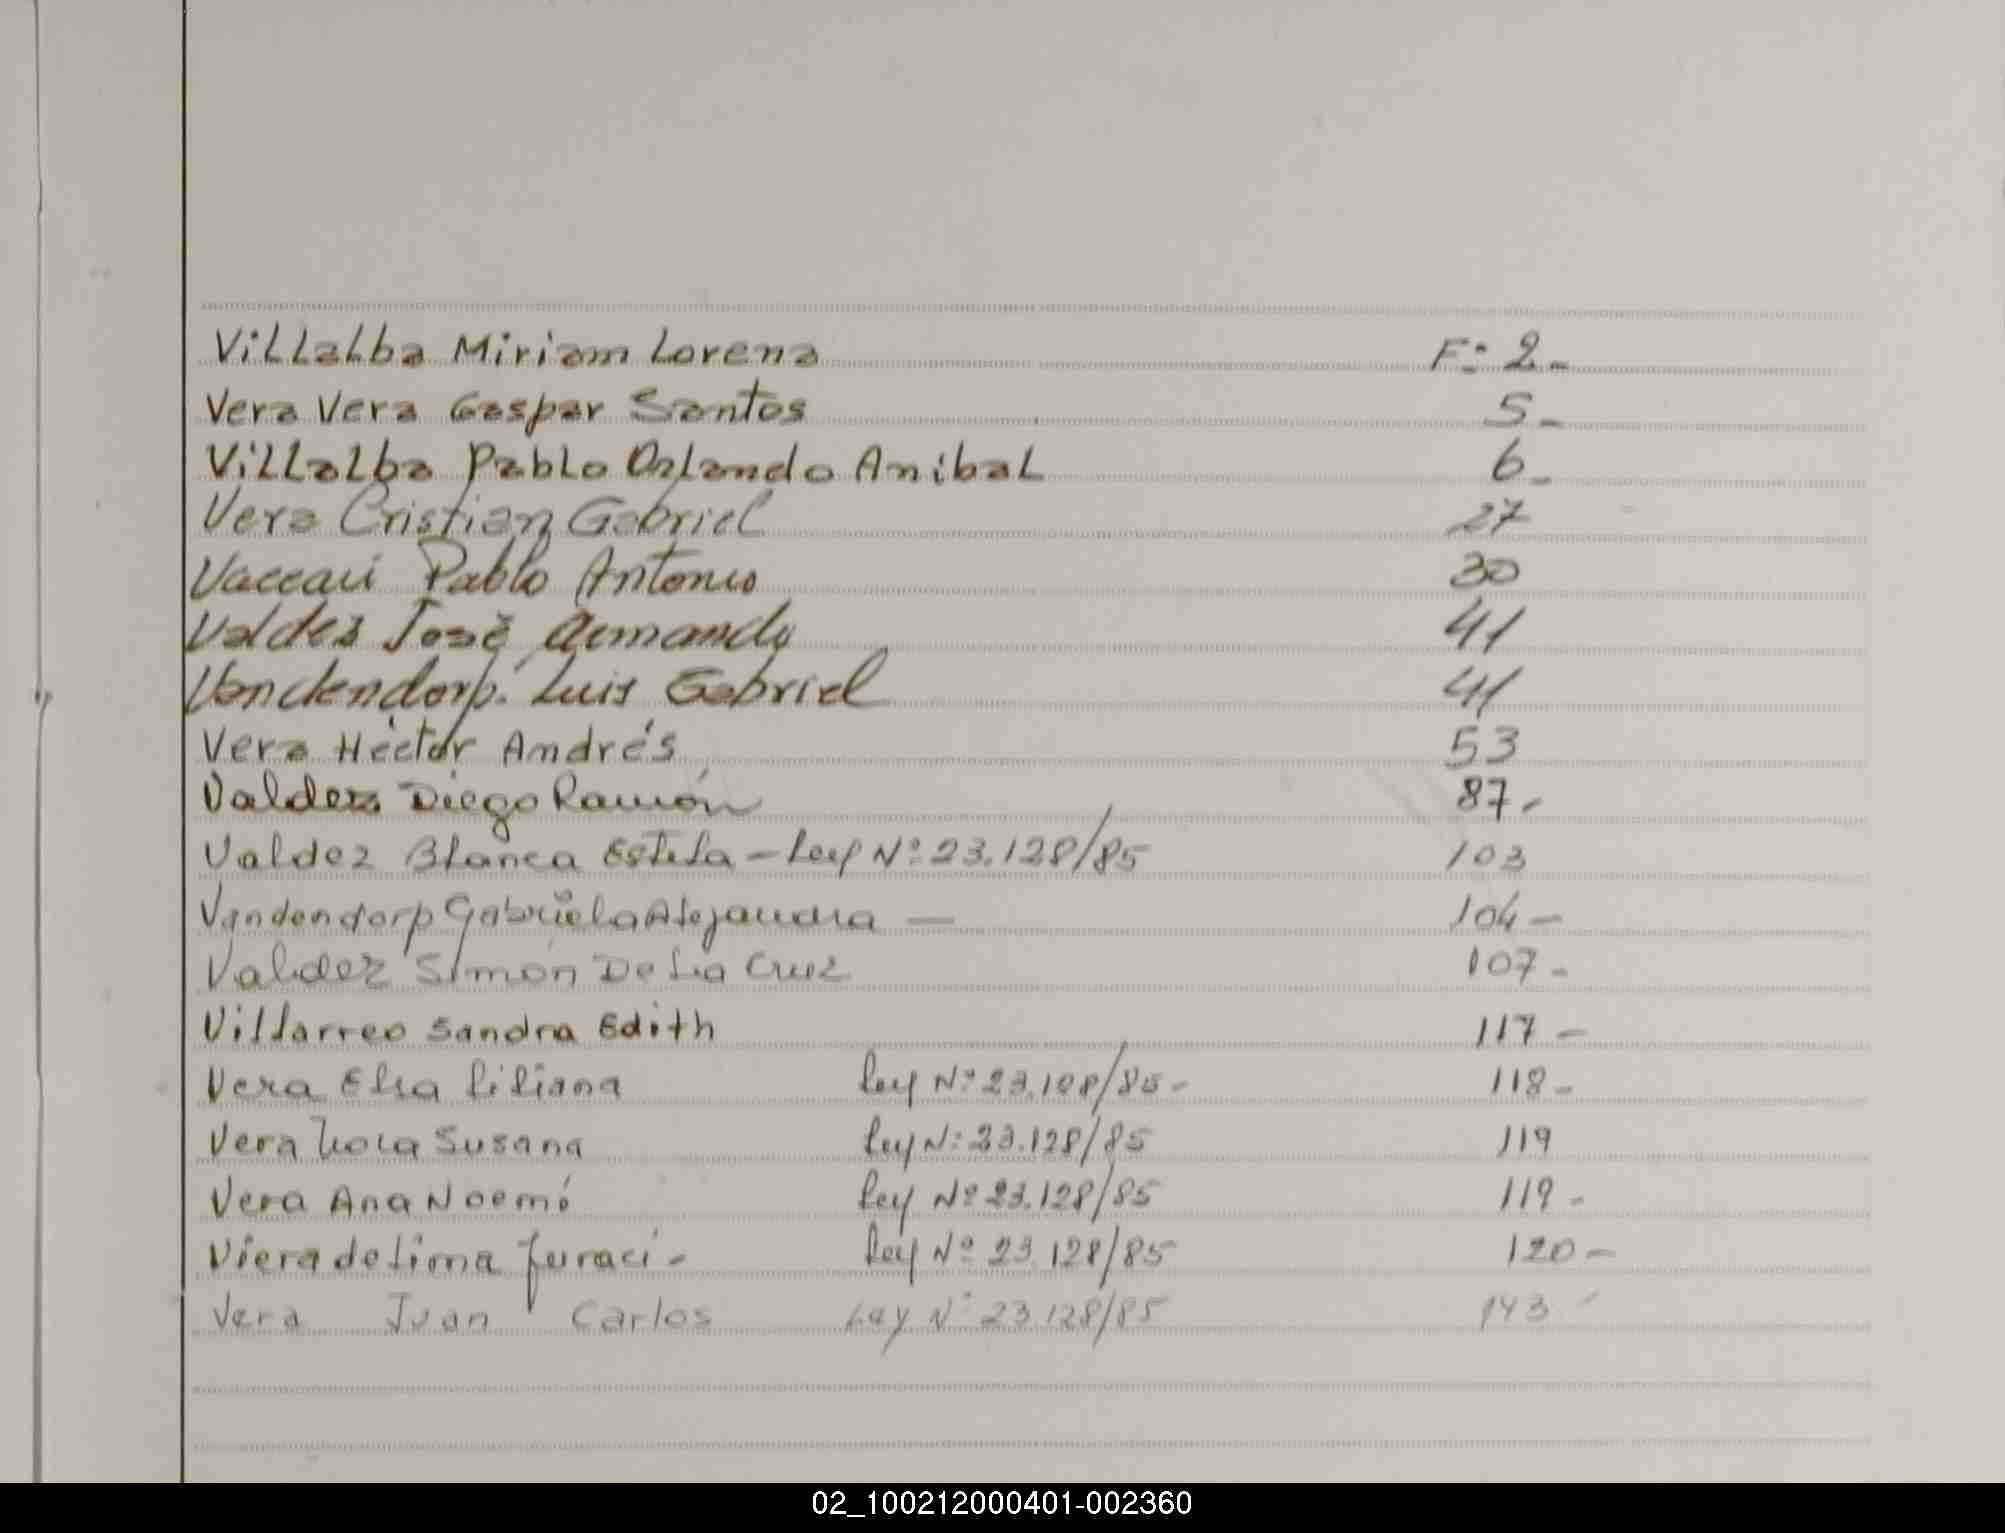 Villalba Miriam Lorena F: 2-
Vera Vera Gaspar Santos 5-
Villalba Pablo Orlando Anibal 6-
Vera Cristian Gabriel 27
Vaccari Pablo Antonio 30
Valdez José Armando 41
Vandendorp. Luis Gabriel 41
Vera Héctor Andrés 53
Valdez Diego Ramón 87-
Valdez Blanca Estela - Ley Nº 23.128/85 103
Vandendorp Gabriela Alejandra - 104-
Valdez Simón De La Cruz 107-
Villarreo Sandra Edith 117-
Vera Elsa Liliana Ley Nº 23.128/85- 118-
Vera Susana Ley Nº 23.128/85 119
Vera Ana Noemí Ley Nº 23.128/85 119-
Viera de Lima Juraci- Ley Nº 23.128/85 120-
Vera Juan Carlos Ley Nº 23.128/85 143
02_100212000401-002360